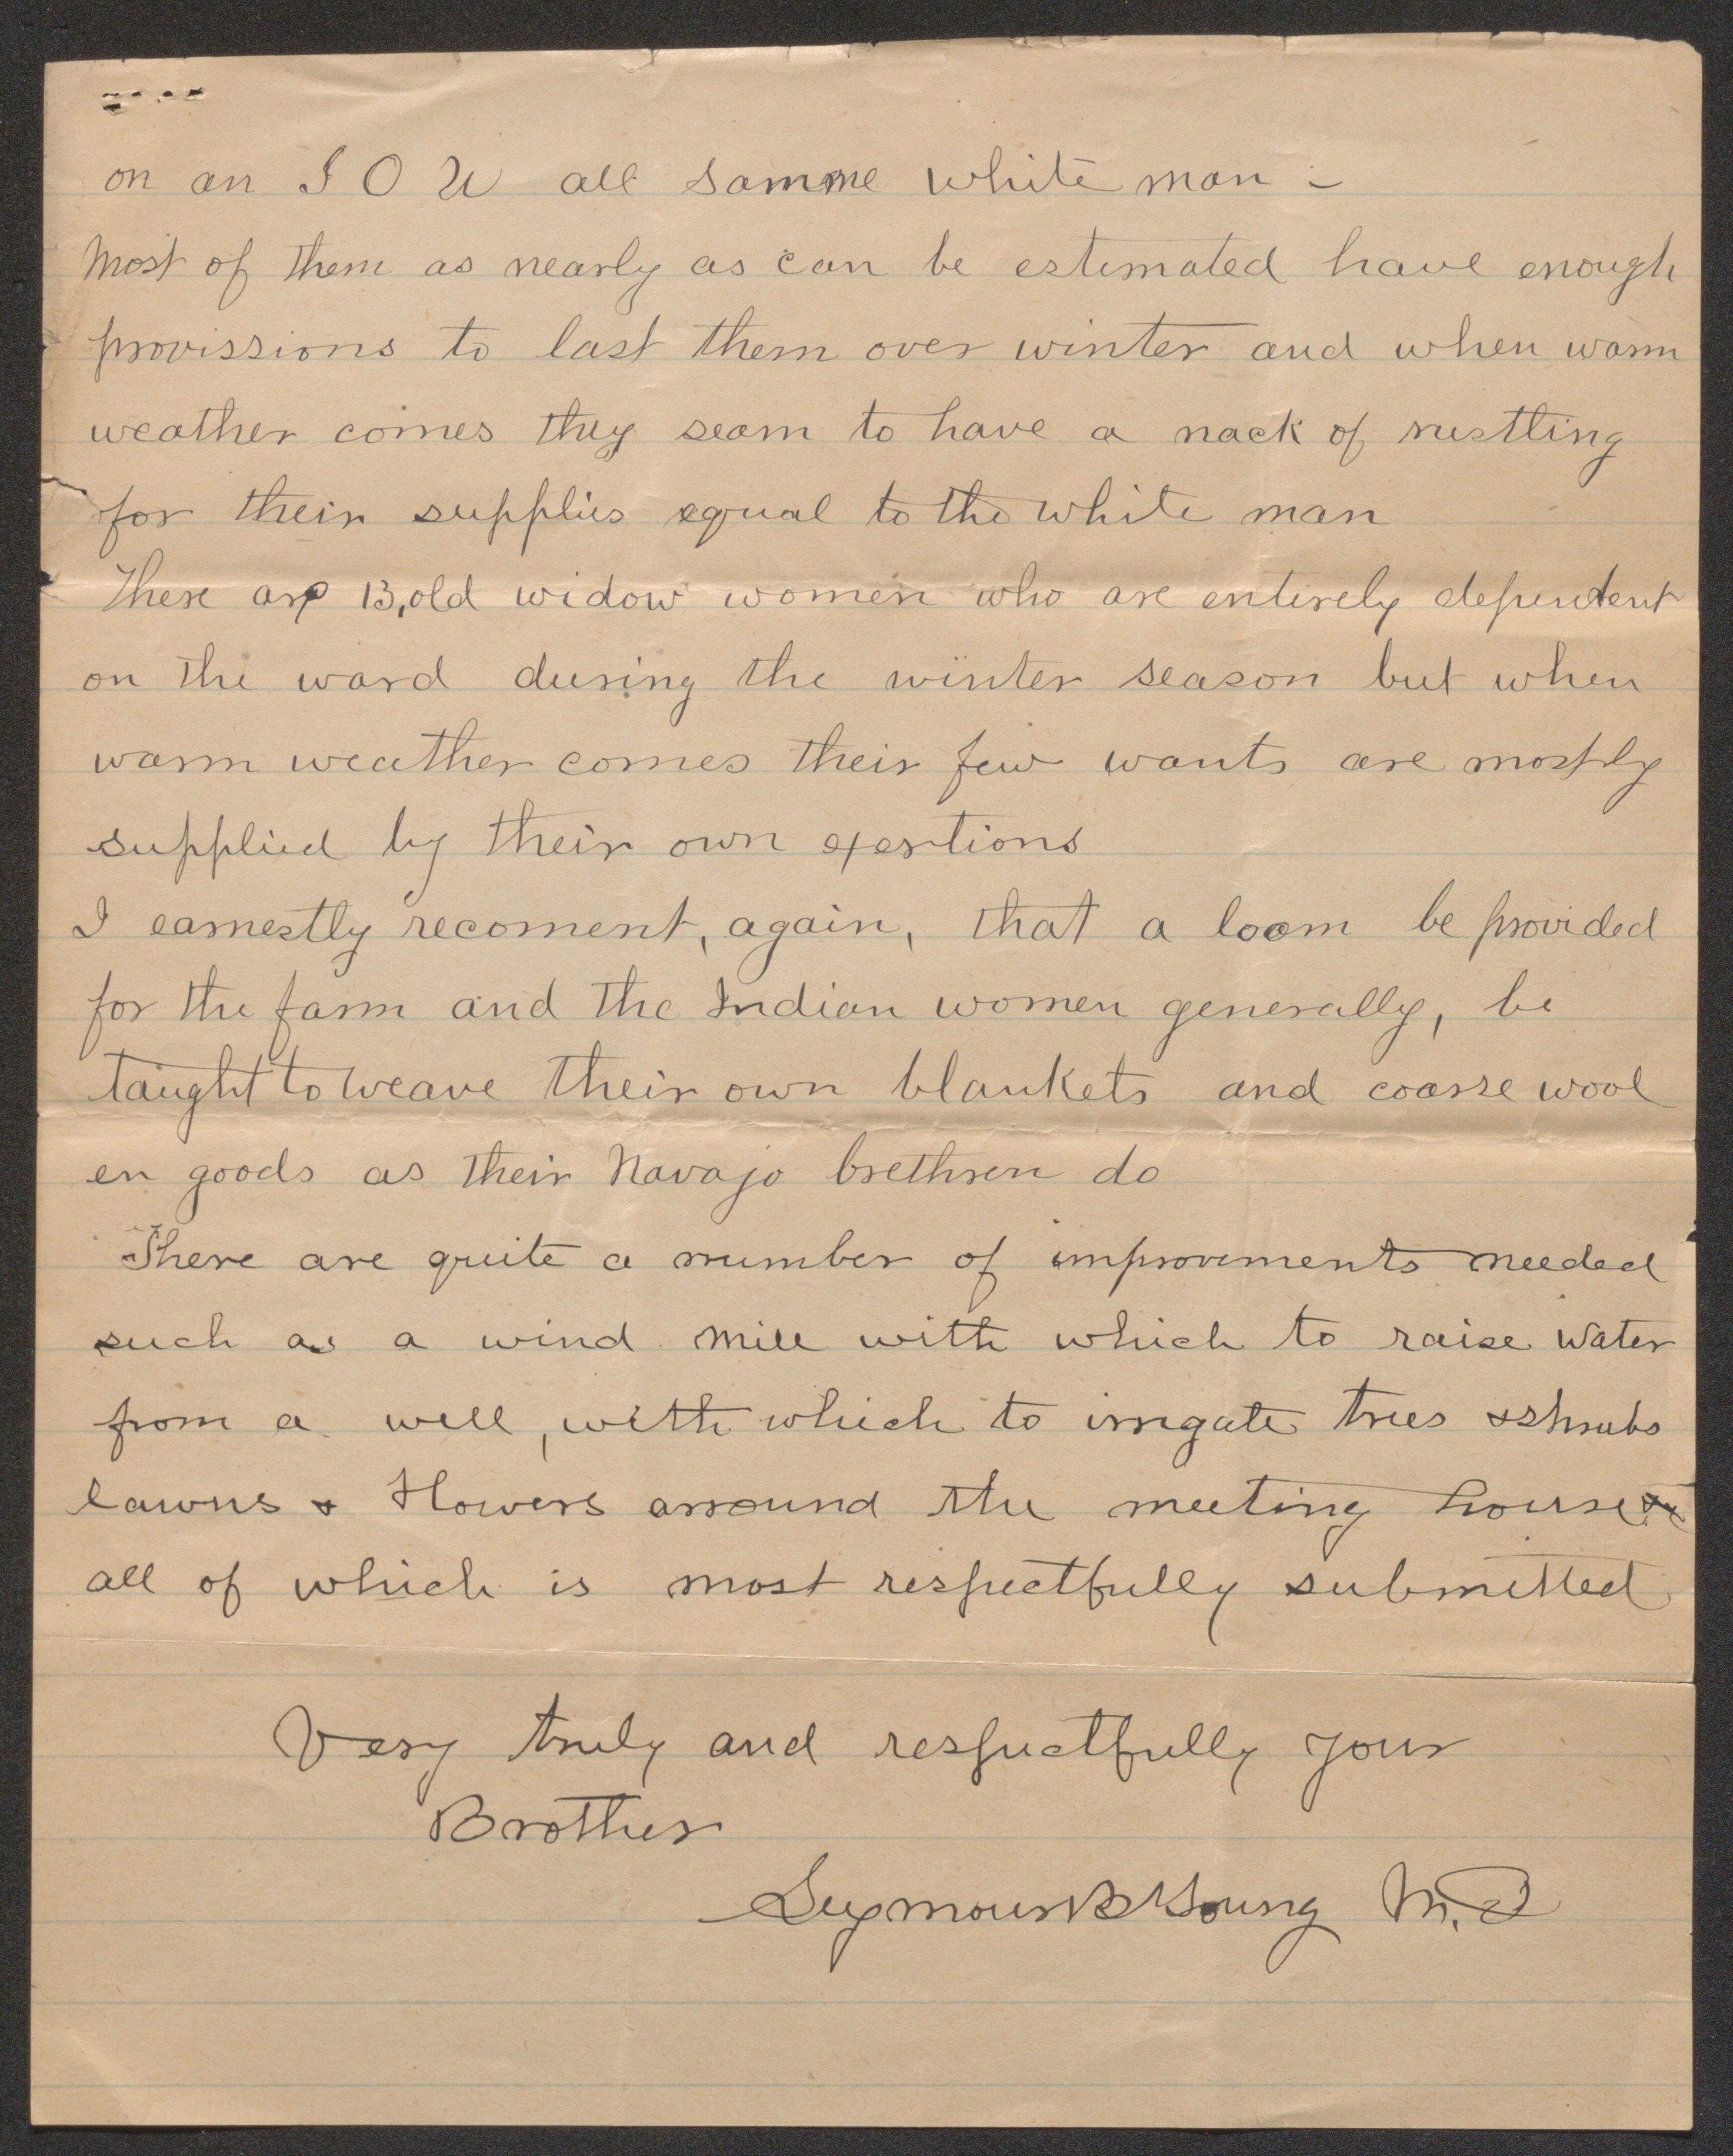 on an I O U all samme white man –
Most of them as nearly as can be estemated have enough
provissions to last them over winter and when warm
weather comes they seam to have a nack of rustling
for their supplies equal to the white man
There are 13, old widow women who are entirely dependent
on the ward during the winter season but when
warm weather comes their few wants are mostly
supplied by their own exertions
I earnestly recoment, again, that a loom be provided
for the farm and the Indian women generally, be
taught to weave their own blankets and coarse wool
en goods as their Navajo brethren do
There are quite a number of improvements needed
such as a wind mill with which to raise water
from a well, with which to irrigate trees & shrubs
lawns & Flowers arround the meeting house &
all of which is most respectfully submitted
Very truly and respectfully your
Brother
Seymour B Young M.D